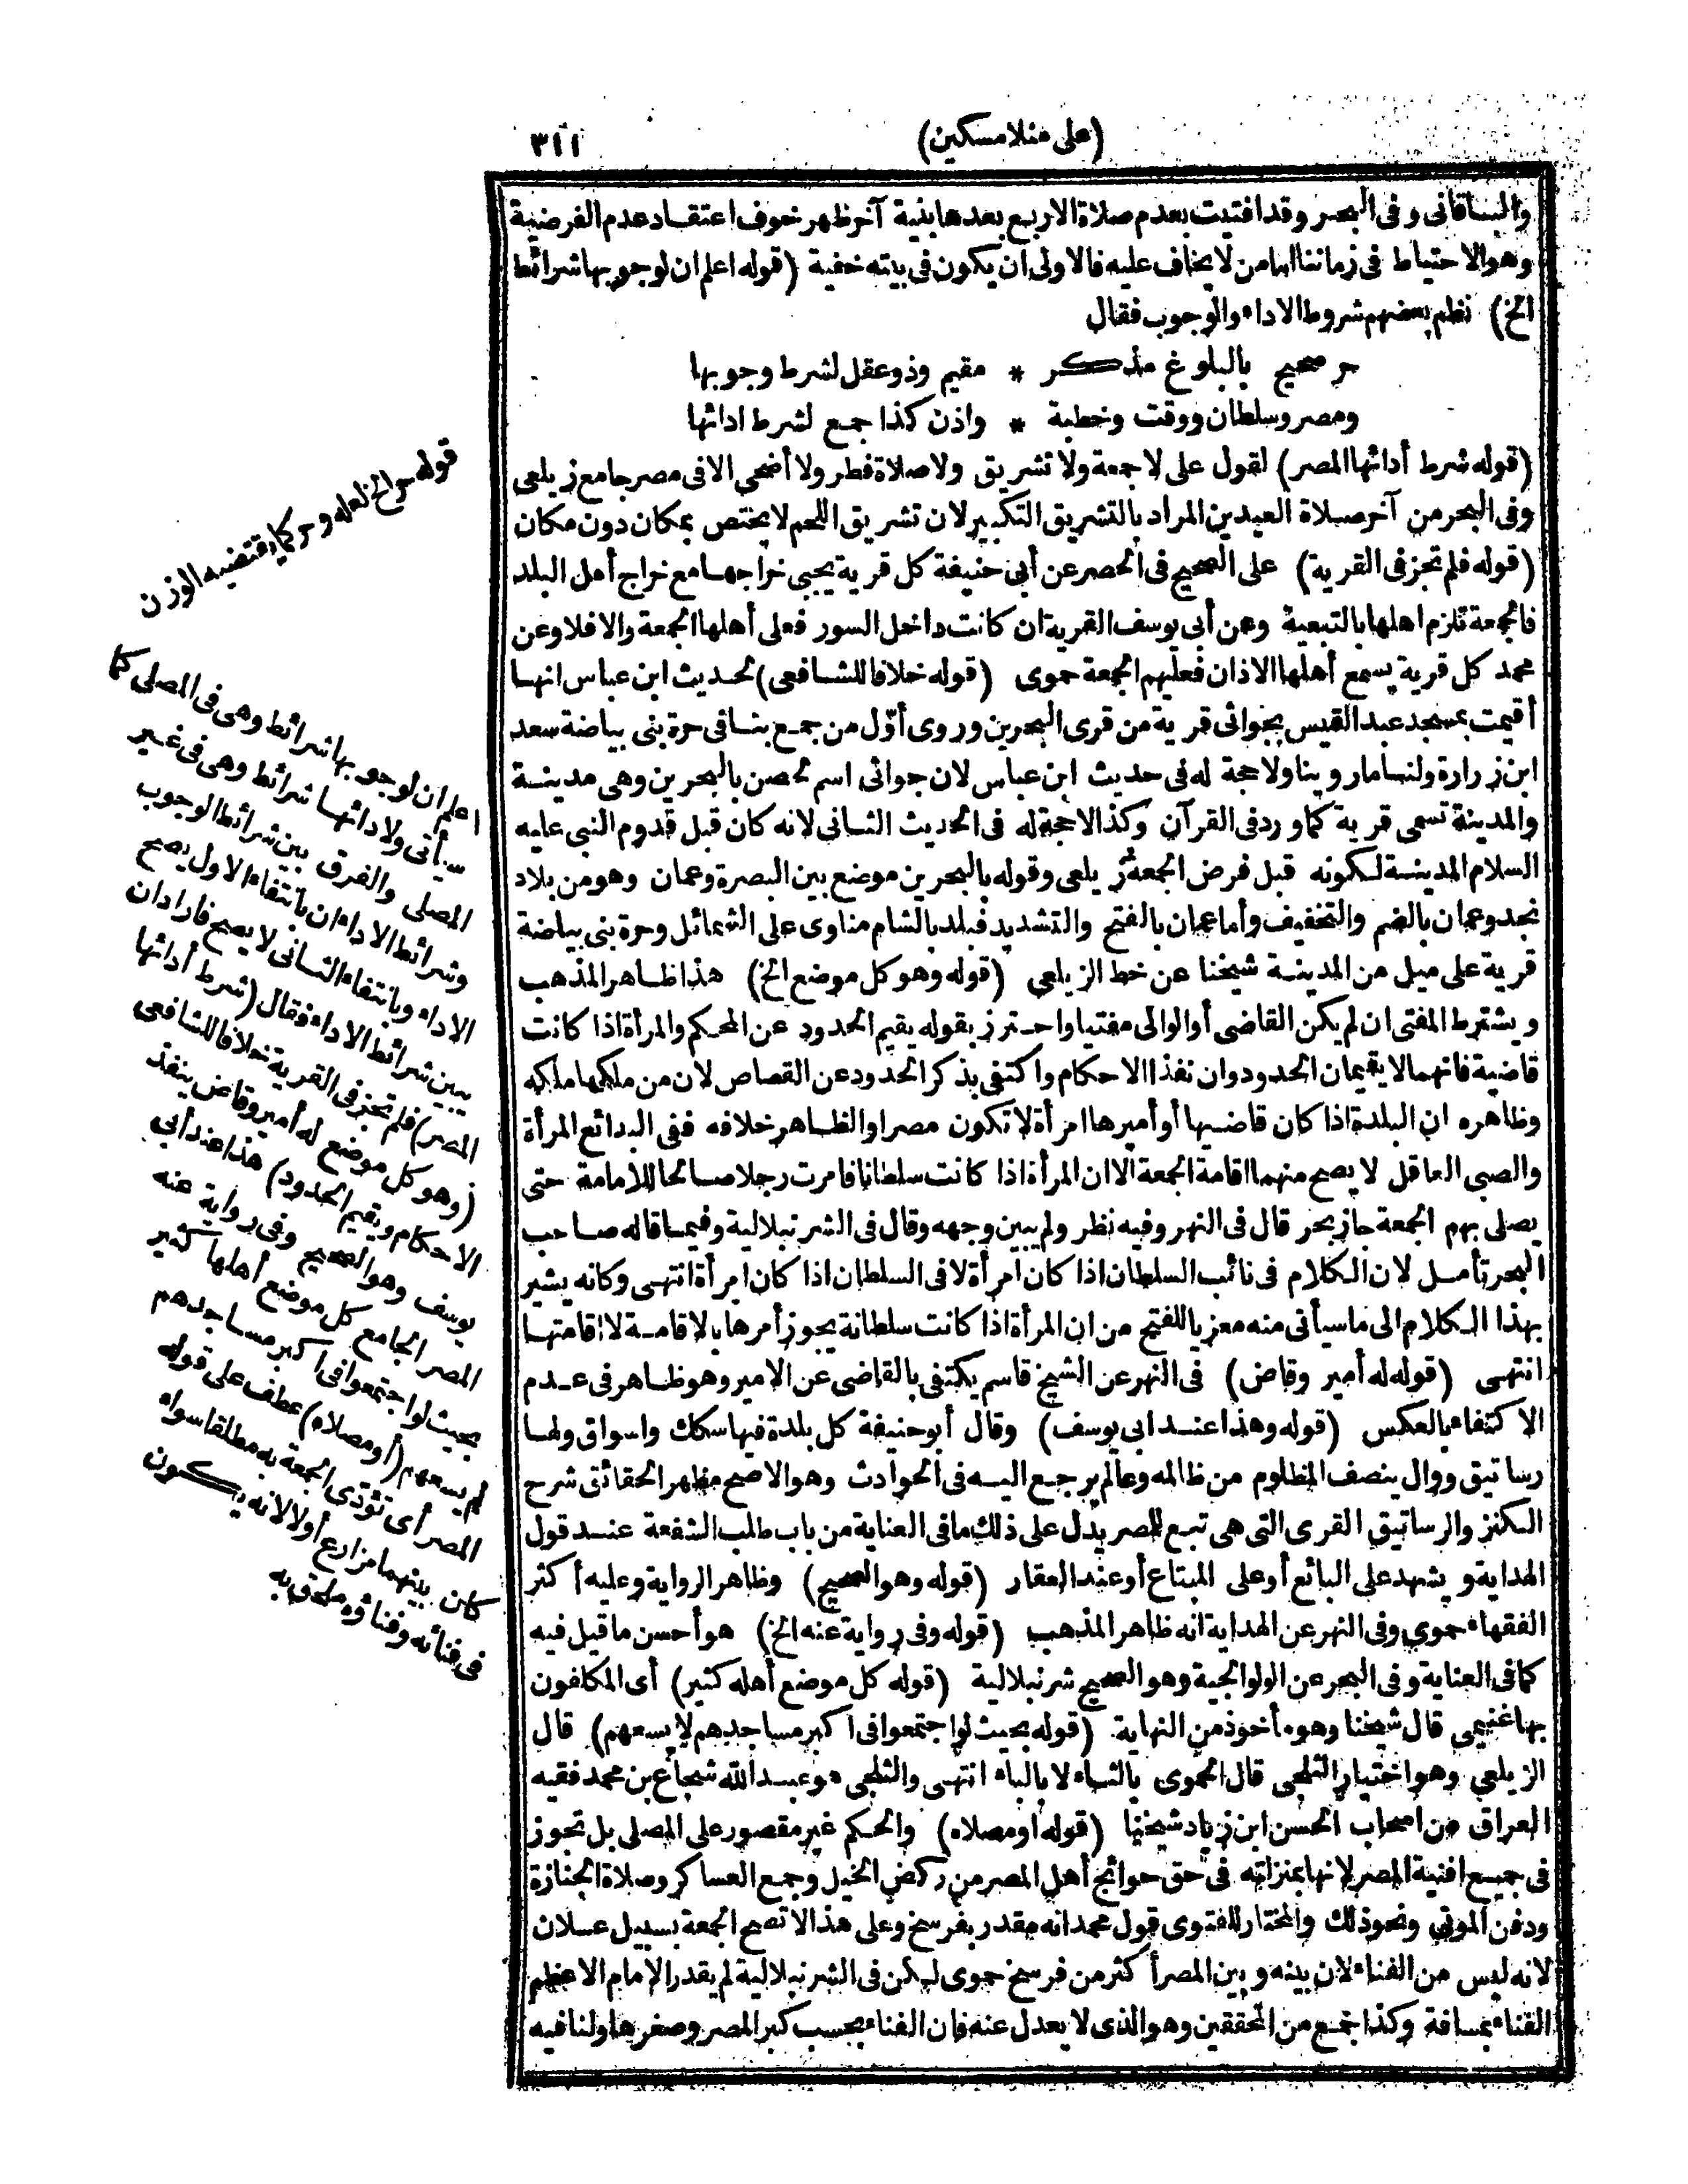 (على منلا مسكين)
٣١١
والباقانى وفى البحر وقد افتيت بعدم صلاة الاربع بعدها بنية آخر ظهر خوف اعتقاد عدم الفرضية
وهو الاحتياط فى زماننا اما من لا يخاف عليه فالاولى ان يكون فى بيته خفية (قوله اعلم ان لوجوبها شرائط
الخ) نظم بعضهم شروط الاداء والوجوب فقال
حر صحيح بالبلوغ مذكر * مقيم وذو عقل لشرط وجوبها
ومصر وسلطان ووقت وخطبة * واذن كذا جمع لشرط ادائها
(قوله شرط أدائها المصر) لقول على لا جمعة ولا تشريق ولا صلاة فطر ولا أضحى الا فى مصر جامع زيلعى
وفى البحر من آخر صلاة العيدين المراد بالتشريق التكبير لان تشريق اللحم لا يختص بمكان دون مكان
(قوله فلم تجز فى القرية) على الصحيح فى الحصر عن أبى حنيفة كل قرية يجبى خراجها مع خراج أهل البلد
فالجمعة تلزم اهلها بالتبعية وعن أبى يوسف القرية ان كانت داخل السور فعلى أهلها الجمعة والا فلا وعن
محمد كل قرية يسمع أهلها الاذان فعليهم الجمعة حموى (قوله خلافا للشافعى) لحديث ابن عباس انها
أقيمت بمسجد عبد القيس بجواثى قرية من قرى البحرين وروى أوّل من جمع بنا فى حرة بنى بياضة سعد
ابن زرارة ولنا ما روينا ولا حجة له فى حديث ابن عباس لان جواثى اسم لحصن بالبحرين وهى مدينة
والمدينة تسمى قرية كما ورد فى القرآن وكذا لا حجة له فى الحديث الثانى لانه كان قبل قدوم النبى عليه
السلام المدينة لكونه قبل فرض الجمعة زيلعى وقوله بالبحرين موضع بين البصرة وعمان وهو من بلاد
نجد وعمان بالضم والتخفيف وأما عمان بالفتح والتشديد فبلد بالشام مناوى على الشمائل وحرة بنى بياضة
قرية على ميل من المدينة شيخنا عن خط الزيلعى (قوله وهو كل موضع الخ) هذا ظاهر المذهب
ويشترط المفتى ان لم يكن القاضى أو الوالى مفتيا واحترز بقوله يقيم الحدود عن المحكم والمرأة اذا كانت
قاضية فانهما لا يقيمان الحدود وان نفذا الاحكام واكتفى بذكر الحدود عن القصاص لان من ملكها ملكه
وظاهره ان البلدة اذا كان قاضيها أو أميرها امرأة لا تكون مصرا والظاهر خلافه ففى البدائع المرأة
والصبى العاقل لا يصح منهما اقامة الجمعة الا ان المرأة اذا كانت سلطانا فامرت رجلا صالحا للامامة حتى
يصلى بهم الجمعة جاز بحر قال فى النهر وفيه نظر ولم يبين وجهه وقال فى الشرنبلالية وفيما قاله صاحب
البحر تأمل لان الكلام فى نائب السلطان اذا كان امرأة لا فى السلطان اذا كان امرأة انتهى وكانه يشير
بهذا الكلام الى ما سيأتى منه معزيا للفتح من ان المرأة اذا كانت سلطانة يجوز أمرها بالاقامة لا اقامتها
انتهى (قوله له أمير وقاض) فى النهر عن الشيخ قاسم يكتفى بالقاضى عن الامير وهو ظاهر فى عدم
الاكتفاء بالعكس (قوله وهذا عند ابى يوسف) وقال أبو حنيفة كل بلدة فيها سكك واسواق ولها
رساتيق ووال ينصف المظلوم من ظالمه وعالم يرجع اليه فى الحوادث وهو الاصح مظهر الحقائق شرح
الكنز والرساتيق القرى التى هى تبع للمصر يدل على ذلك ما فى العناية من باب طلب الشفعة عند قول
الهداية ويشهد على البائع أو على المبتاع أو عند العقار (قوله وهو الصحيح) وظاهر الرواية وعليه أكثر
الفقهاء حموى وفى النهر عن الهداية انه ظاهر المذهب (قوله وفى رواية عنه الخ) هو أحسن ما قيل فيه
كما فى العناية وفى البحر عن الولوالجية وهو الصحيح شرنبلالية (قوله كل موضع أهله كثير) أى المكلفون
بها غنيمى قال شيخنا وهو مأخوذ من النهاية (قوله بحيث لو اجتمعوا فى اكبر مساجدهم لا يسعهم) قال
الزيلعى وهو اختيار الثلجى قال الحموى بالثاء لا بالباء انتهى والثلجى هو عبد الله شجاع بن محمد فقيه
العراق من اصحاب الحسن ابن زياد شيخنا (قوله او مصلاه) والحكم غير مقصور على المصلى بل تجوز
فى جميع افنية المصر لانها بمنزلته فى حق حوائج أهل المصر من ركض الخيل وجمع العساكر وصلاة الجنازة
ودفن الموتى ونحو ذلك والمختار للفتوى قول محمد انه مقدر بفرسخ وعلى هذا لا تصح الجمعة بسبيل علان
لانه ليس من الفناء لان بينه وبين المصر أكثر من فرسخ حموى ليكن فى الشرنبلالية لم يقدر الامام الاعظم
الفناء بمسافة وكذا جمع من المحققين وهو الذى لا يعدل عنه فان الفناء بحسب كبر المصر وصغرها ولنا فيه
قوله حر الخ لعله وحر كما يقتضيه الوزن
اعلم ان لوجوبها شرائط وهى فى المصلى كما
سيأتى ولادائها شرائط وهى فى غير
المصلى والفرق بين شرائط الوجوب
وشرائط الاداء ان بانتفاء الاول يصح
الاداء وبانتفاء الثانى لا يصح فاراد ان
يبين شرائط الاداء فقال (شرط أدائها
المصر) فلم تجز فى القرية خلافا للشافعى
(وهو كل موضع له أمير وقاض ينفذ
الاحكام ويقيم الحدود) هذا عند أبى
يوسف وهو الصحيح وفى رواية عنه
المصر الجامع كل موضع أهلها كثير
بحيث لو اجتمعوا فى اكبر مساجدهم
لم يسعهم (أو مصلاه) عطف على قوله
المصر أى تؤدى الجمعة به مطلقا سواء
كان بينهما مزارع أو لا لانه يكون
فى فنائه وفناؤه ملحق به